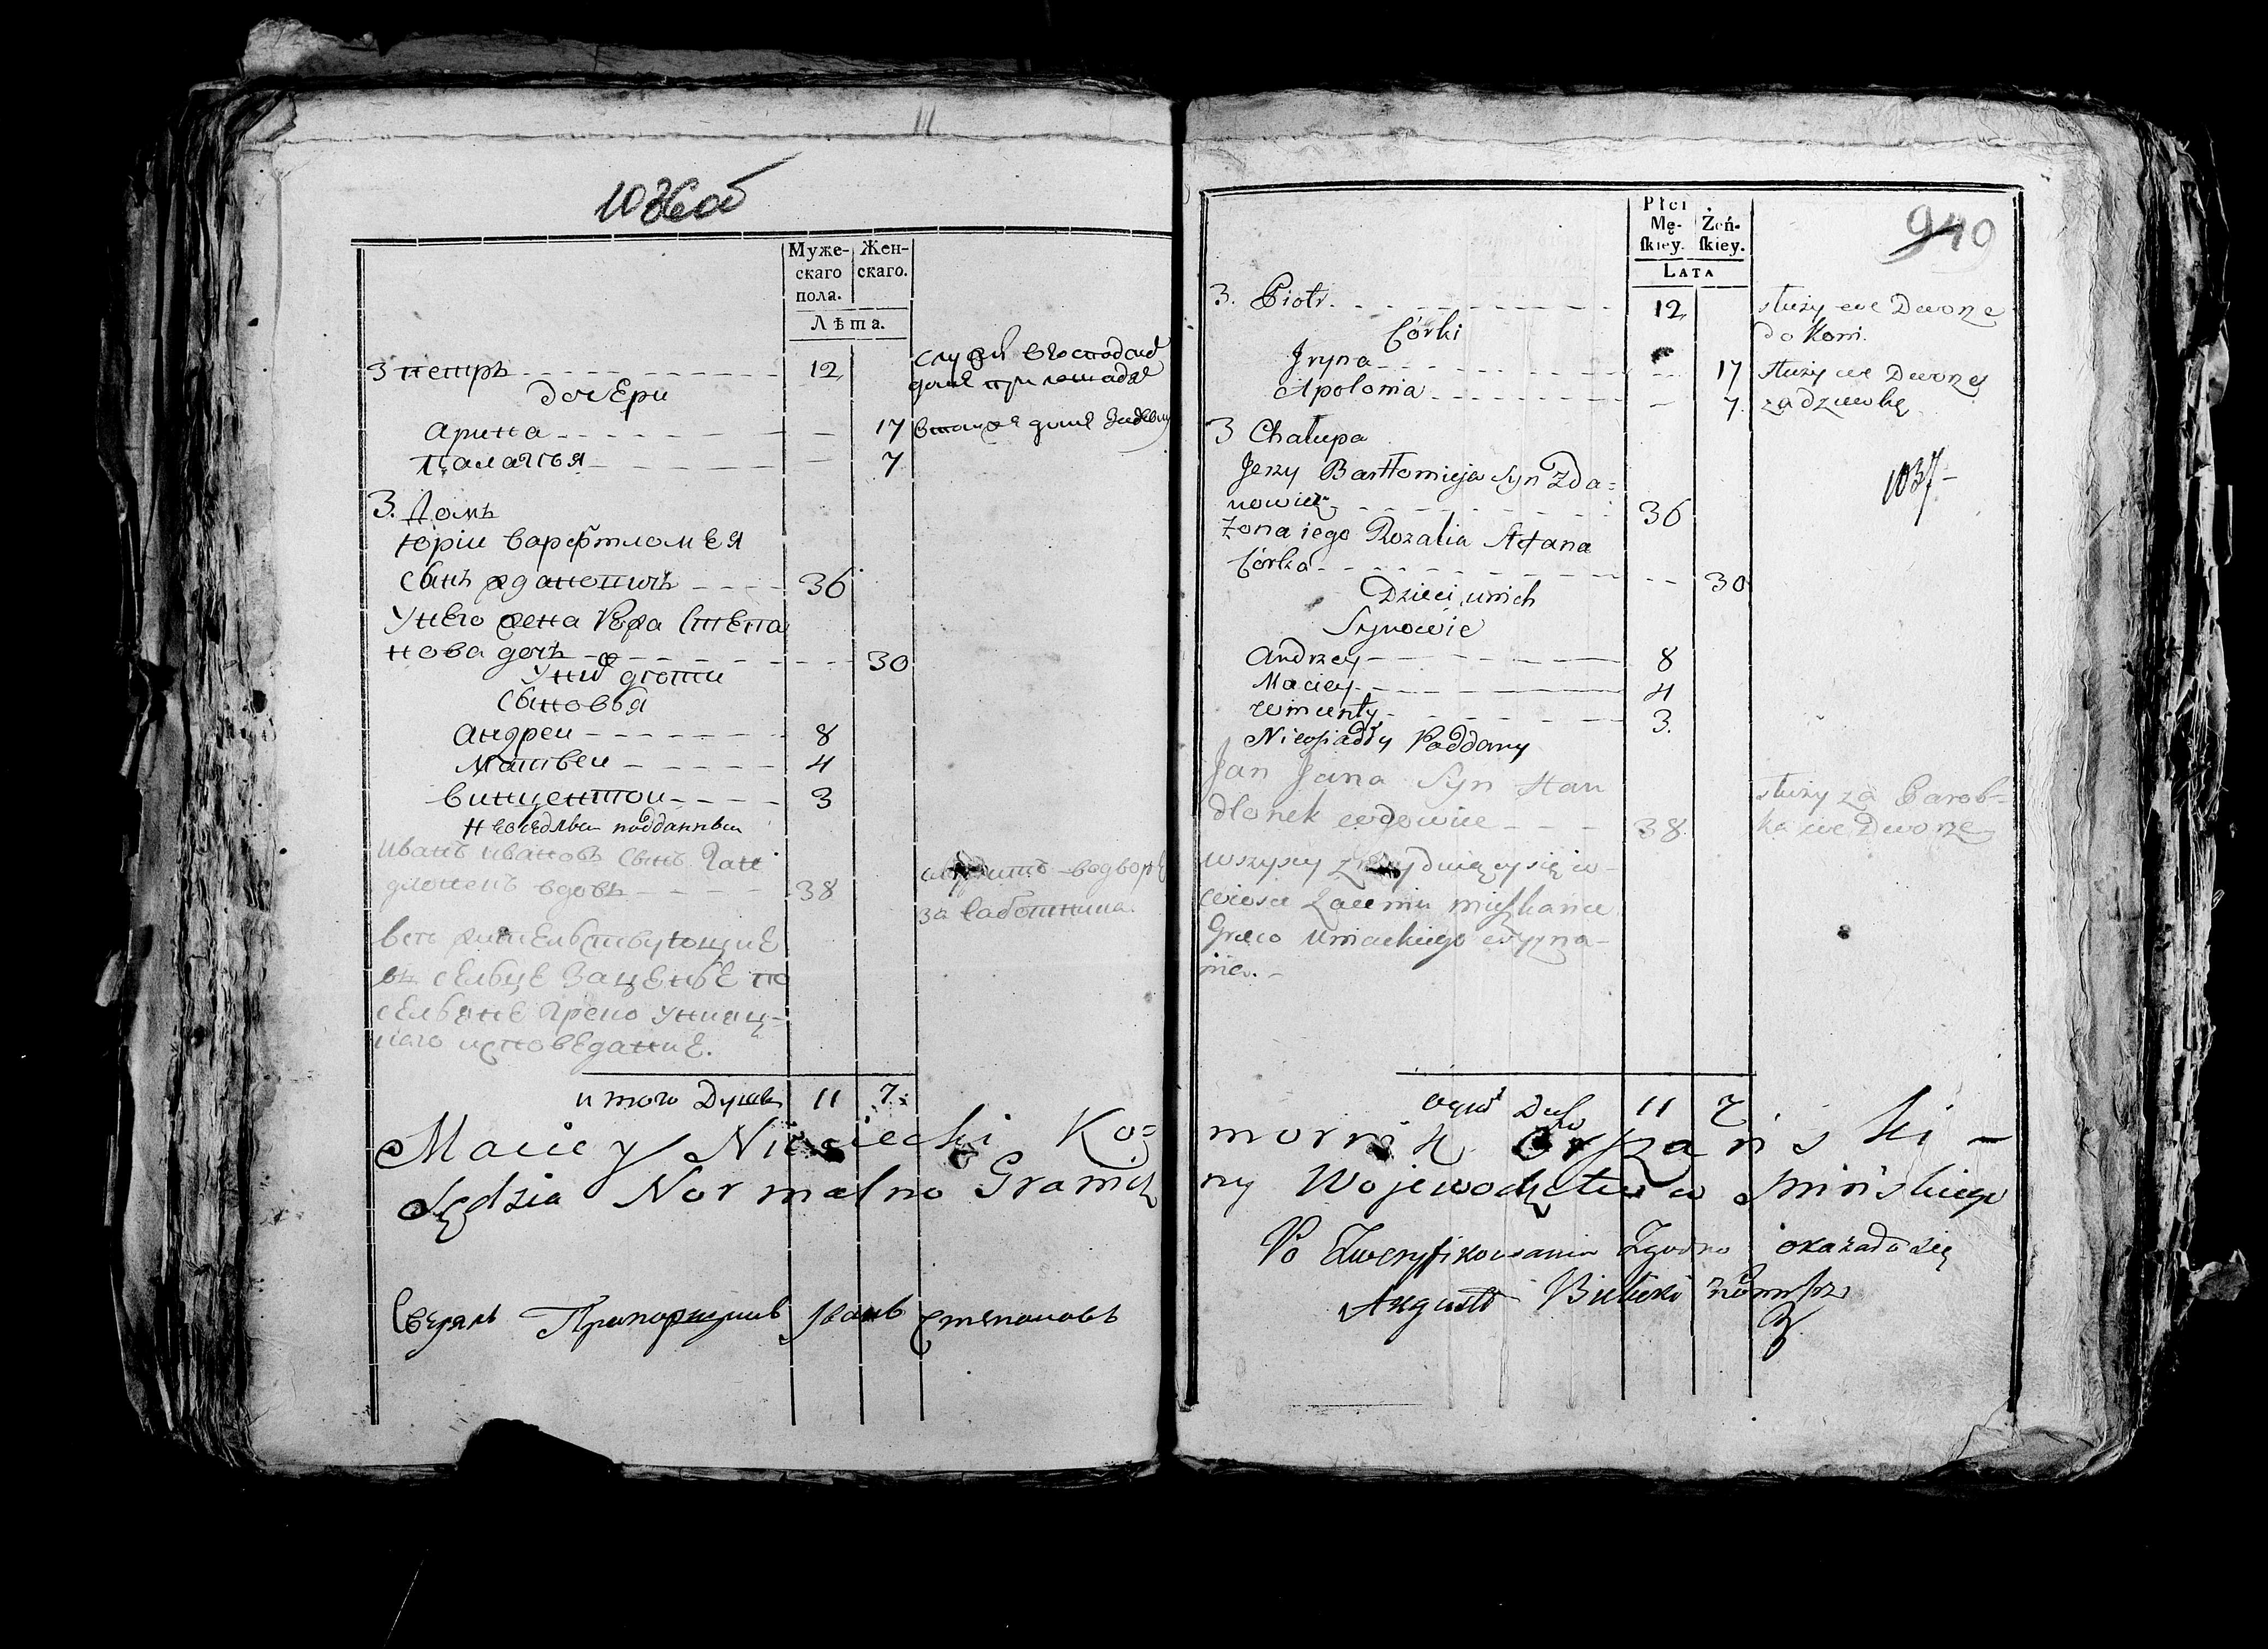 1036об
Муже-
скаго
пола.
Жен-
скаго.
Лѣта.
3 петръ 12
дочери
Арина 17
Палагъя 7
3. Домъ
Юріи Варфтломея
Сынъ Жданопичъ 36
У него жена Вера Степа
нова дочъ 30
у них дѣти
Сыновья
Андреи 8
Матвеи 4
Винцентои 3
Неседлыи подданныи
Иванъ Ивановъ Сынъ Ган
длонекъ вдовъ 38
служитъ во дворѣ
за работника.
Всѣ жительствующие
въ селъце Заценъе по
селяне греко униац-
каго исповедание.
итого Душъ 11 7
Maciey Ko=
Sędzia Normalno Granicz
Сверялъ Прапорщикъ Иванъ Степановъ
949
Płci
Mę-
ſkiey.
Żeń-
ſkiey.
LATA
3. Piotr. 12 służy we Dworze
do Koni.
Córki
Jryna 17 służy we Dworze
Apolonia 7. za dziewkę
3 Chałupa
1037
Jerzy Bartłomieja Syn Zda=
nowicz 36
Żona iego Rozalia Stefana
Córka 30
Dzieci u nich
Synowie
Andrzey 8
Maciey 4
Wincenty 3.
Nieosiadły Poddany
Jan Jana Syn Han
dlonek wdowiec 38
służy za Parob=
ka we Dworze
wszyscy znaydujący się w
wiosce Zaceniu mieszkańcy
Greco Uniackiego wyzna-
nia.
Ogół Dusz 11 7
mornik
ny Wojewodztwa Mińskiego
Po Zweryfikowaniu Zgodno okazało się
August